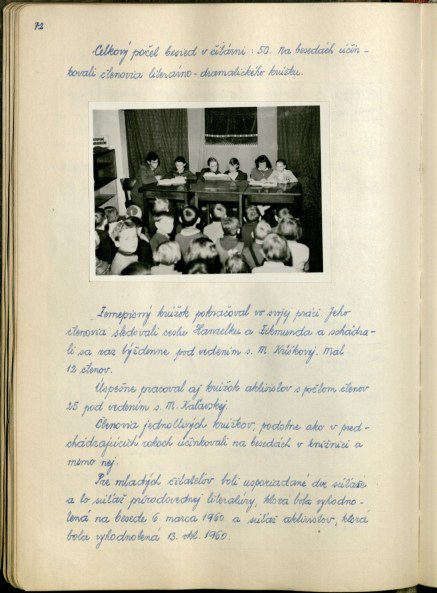 72
Celkový počet besied v čitárni: 50. Na besedách účin-
kovali členovia literárno-dramatického krúžku.
Zemepisný krúžok pokračoval vo svojej práci. Jeho
členovia sledovali cestu Hanzelku a Zikmunda a schádza-
li sa raz týždenne pod vedením s. M. Mal
12 členov.
Úspešne pracoval aj krúžok aktivistov s počtom členov
25 pod vedením s. M.
Členovia jednotlivých krúžkov, podobne ako v pred-
chádzajúcich rokoch účinkovali na besedách v knižnici a
mimo nej.
Pre mladých čitateľov boli usporiadané dve súťaže
a to súťaž prírodovednej literatúry, ktorá bola vyhodno-
tená na besede 6. marca 1960 a súťaž aktivistov, ktorá
bola vyhodnotená 13. okt. 1960.